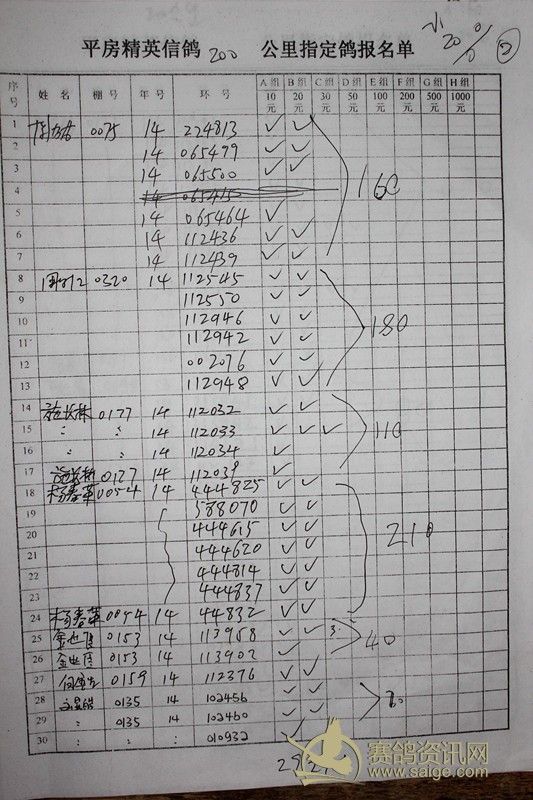 小 20%
2
平房精英信鸽 200 公里指定鸽报名单
序号 姓名 棚号 年号 环号 A组 10元 B组 20元 C组 30元 D组 50元 E组 100元 F组 200元 G组 500元 H组 1000元
1 0075 14 224813 ✓ ✓
2 14 065479 ✓ ✓
3 14 065500 ✓ ✓
4 14 160
5 14 065464 ✓
6 14 112436 ✓ ✓
7 14 112439 ✓ ✓
8 0320 14 112545 ✓ ✓
9 112550 ✓ ✓
10 112946 ✓ ✓ 180
11 112942 ✓ ✓
12 002076 ✓ ✓
13 112948 ✓ ✓
14 0177 14 112032 ✓ ✓
15 : : 14 112033 ✓ ✓ ✓ 110
16 : : 14 112034 ✓
17 0177 14 112039 ✓
18 杨春荣 0054 14 444825 ✓ ✓
19 588070 ✓ ✓
20 444615 ✓ ✓ 210
21 444620 ✓ ✓
22 444814 ✓ ✓
23 444837 ✓ ✓
24 杨春荣 0054 14 44832 ✓ ✓
25 0153 14 113958 ✓ ✓ 40
26 0153 14 113902 ✓
27 0159 14 112376 ✓ ✓
28 0135 14 102456 ✓ ✓
29 : 0135 14 102460 ✓ ✓
30 : : : 010932 ✓ ✓
赛鸽资讯网
www.saige.com